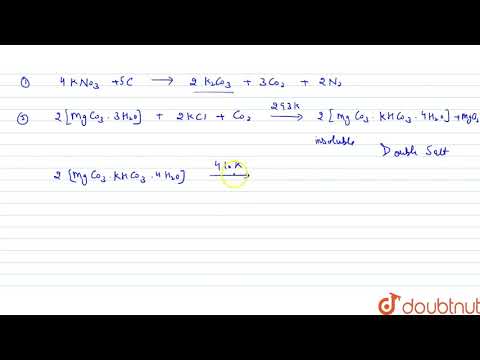 ① 4KNO₃ + 5C → 2K₂CO₃ + 3CO₂ + 2N₂
② 2[MgCO₃·3H₂O] + 2KCl + CO₂ 293K→ 2[MgCO₃·KHCO₃·4H₂O] +
insoluble Double Salt
2[MgCO₃·KHCO₃·4H₂O] K→
doubtnut